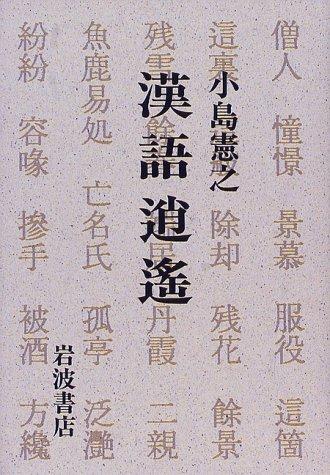 漢語逍遙
小島憲之
岩波書店
僧人 憧憬 景慕 服役 這箇
這裏 除却 残花 餘景
残雪 丹霞 二親
魚鹿易処 亡名氏 孤亭 泛灧
紛紛 容喙 摻手 被酒 方纔